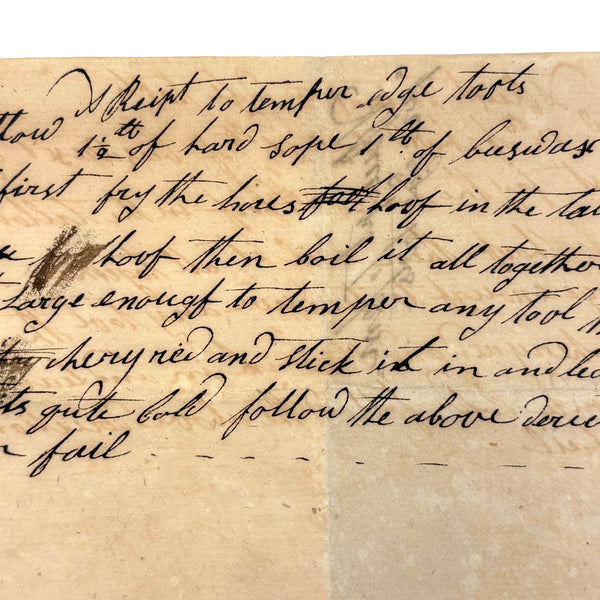 A Reipt to temper edge tools
llow 1½ lb of hard sope 1 lb. of beeswax
first fry the hores hoof in the tal
hoof then boil it all together
Large enougf to temper any tool
chery red and stick it in and le
its quite cold follow the above derec
fail - - - - - - - -